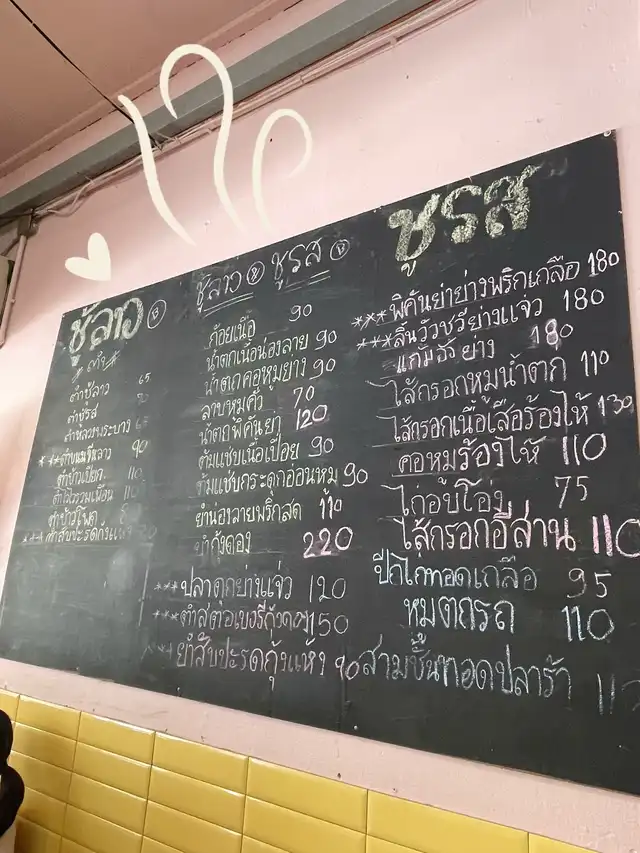 ชู้ลาว
ตำ
ตำชู้ลาว 65
ตำชูรส 70
ตำหลวงพระบาง 65
90
110
ตำข้าวโพด
ตำสับปะรดกุ้งแห้ง
ชู้ลาว ชูรส
ก้อยเนื้อ 90
น้ำตกเนื้อน่องลาย 90
น้ำตกคอหมูย่าง 90
ลาบหมูคั่ว 70
น้ำตกพิคันย่า 120
ต้มแซ่บเนื้อเปื่อย 90
ต้มแซ่บกระดูกอ่อนหมู 90
ยำน่องลายพริกสด 110
ยำกุ้งดอง 220
***ปลาดุกย่างแจ่ว 120
***ตำสตอเบอรี่กุ้งดอง 150
ยำสับปะรดกุ้งแห้ง 90
ชูรส
***พิคันย่าย่างพริกเกลือ 180
***ลิ้นวัวชวียย่างแจ่ว 180
ย่าง 180
ไส้กรอกหมูน้ำตก 110
ไส้กรอกเนื้อเสือร้องไห้ 130
คอหมูร้องไห้ 110
ไก่อบโอ่ง 75
ไส้กรอกอีสาน 110
ปีกไก่ทอดเกลือ 95
หมูตกรถ 110
สามชั้นทอดปลาร้า